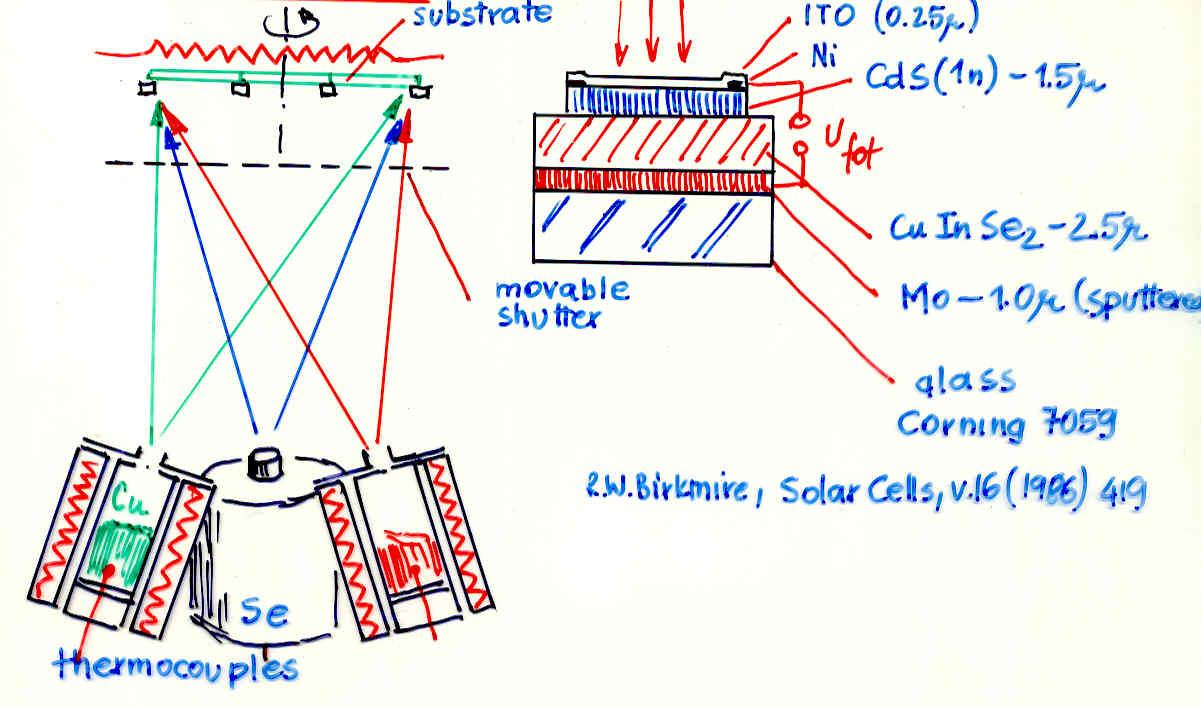 substrate
ITO (0.25μ)
Ni
CdS(1n) - 1.5μ
U fot
CuInSe2 - 2.5μ
Mo - 1.0μ (sputtered
movable
shutter
glass
Corning 7059
R.W.Birkmire, Solar Cells, v.16 (1986) 419
Cu
Se
thermocouples